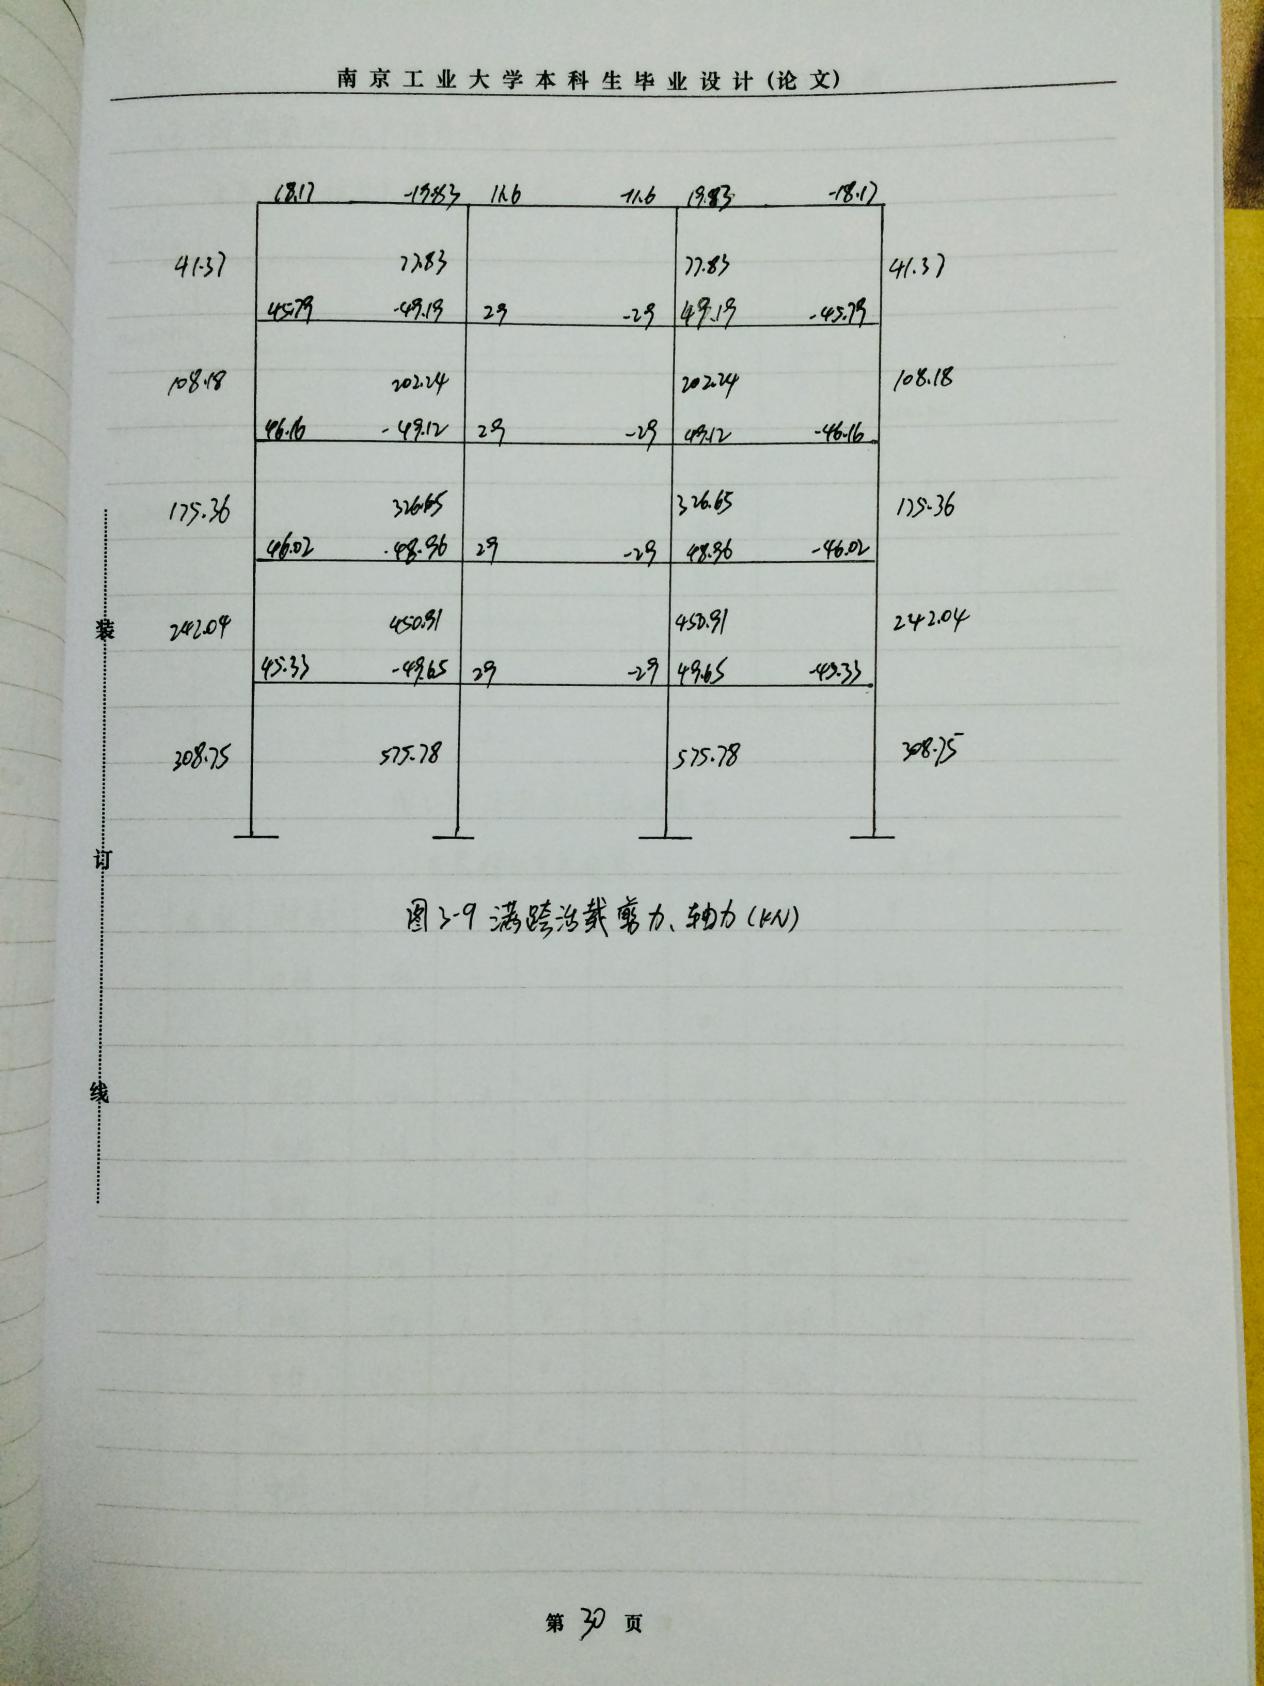 南京工业大学本科生毕业设计(论文)
18.17 -19.83 11.6 -11.6 19.83 -18.17
41.37 77.83 77.83 41.37
45.79 -49.19 29 -29 49.19 -45.79
108.18 202.24 202.24 108.18
46.16 -49.12 29 -29 49.12 -46.16
175.36 326.65 326.65 175.36
46.02 -48.96 29 -29 48.96 -46.02
242.04 450.91 450.91 242.04
45.33 -49.65 29 -29 49.65 -45.33
308.75 575.78 575.78 308.75
图3-9 满跨活载剪力、轴力(KN)
装
订
线
第 30 页